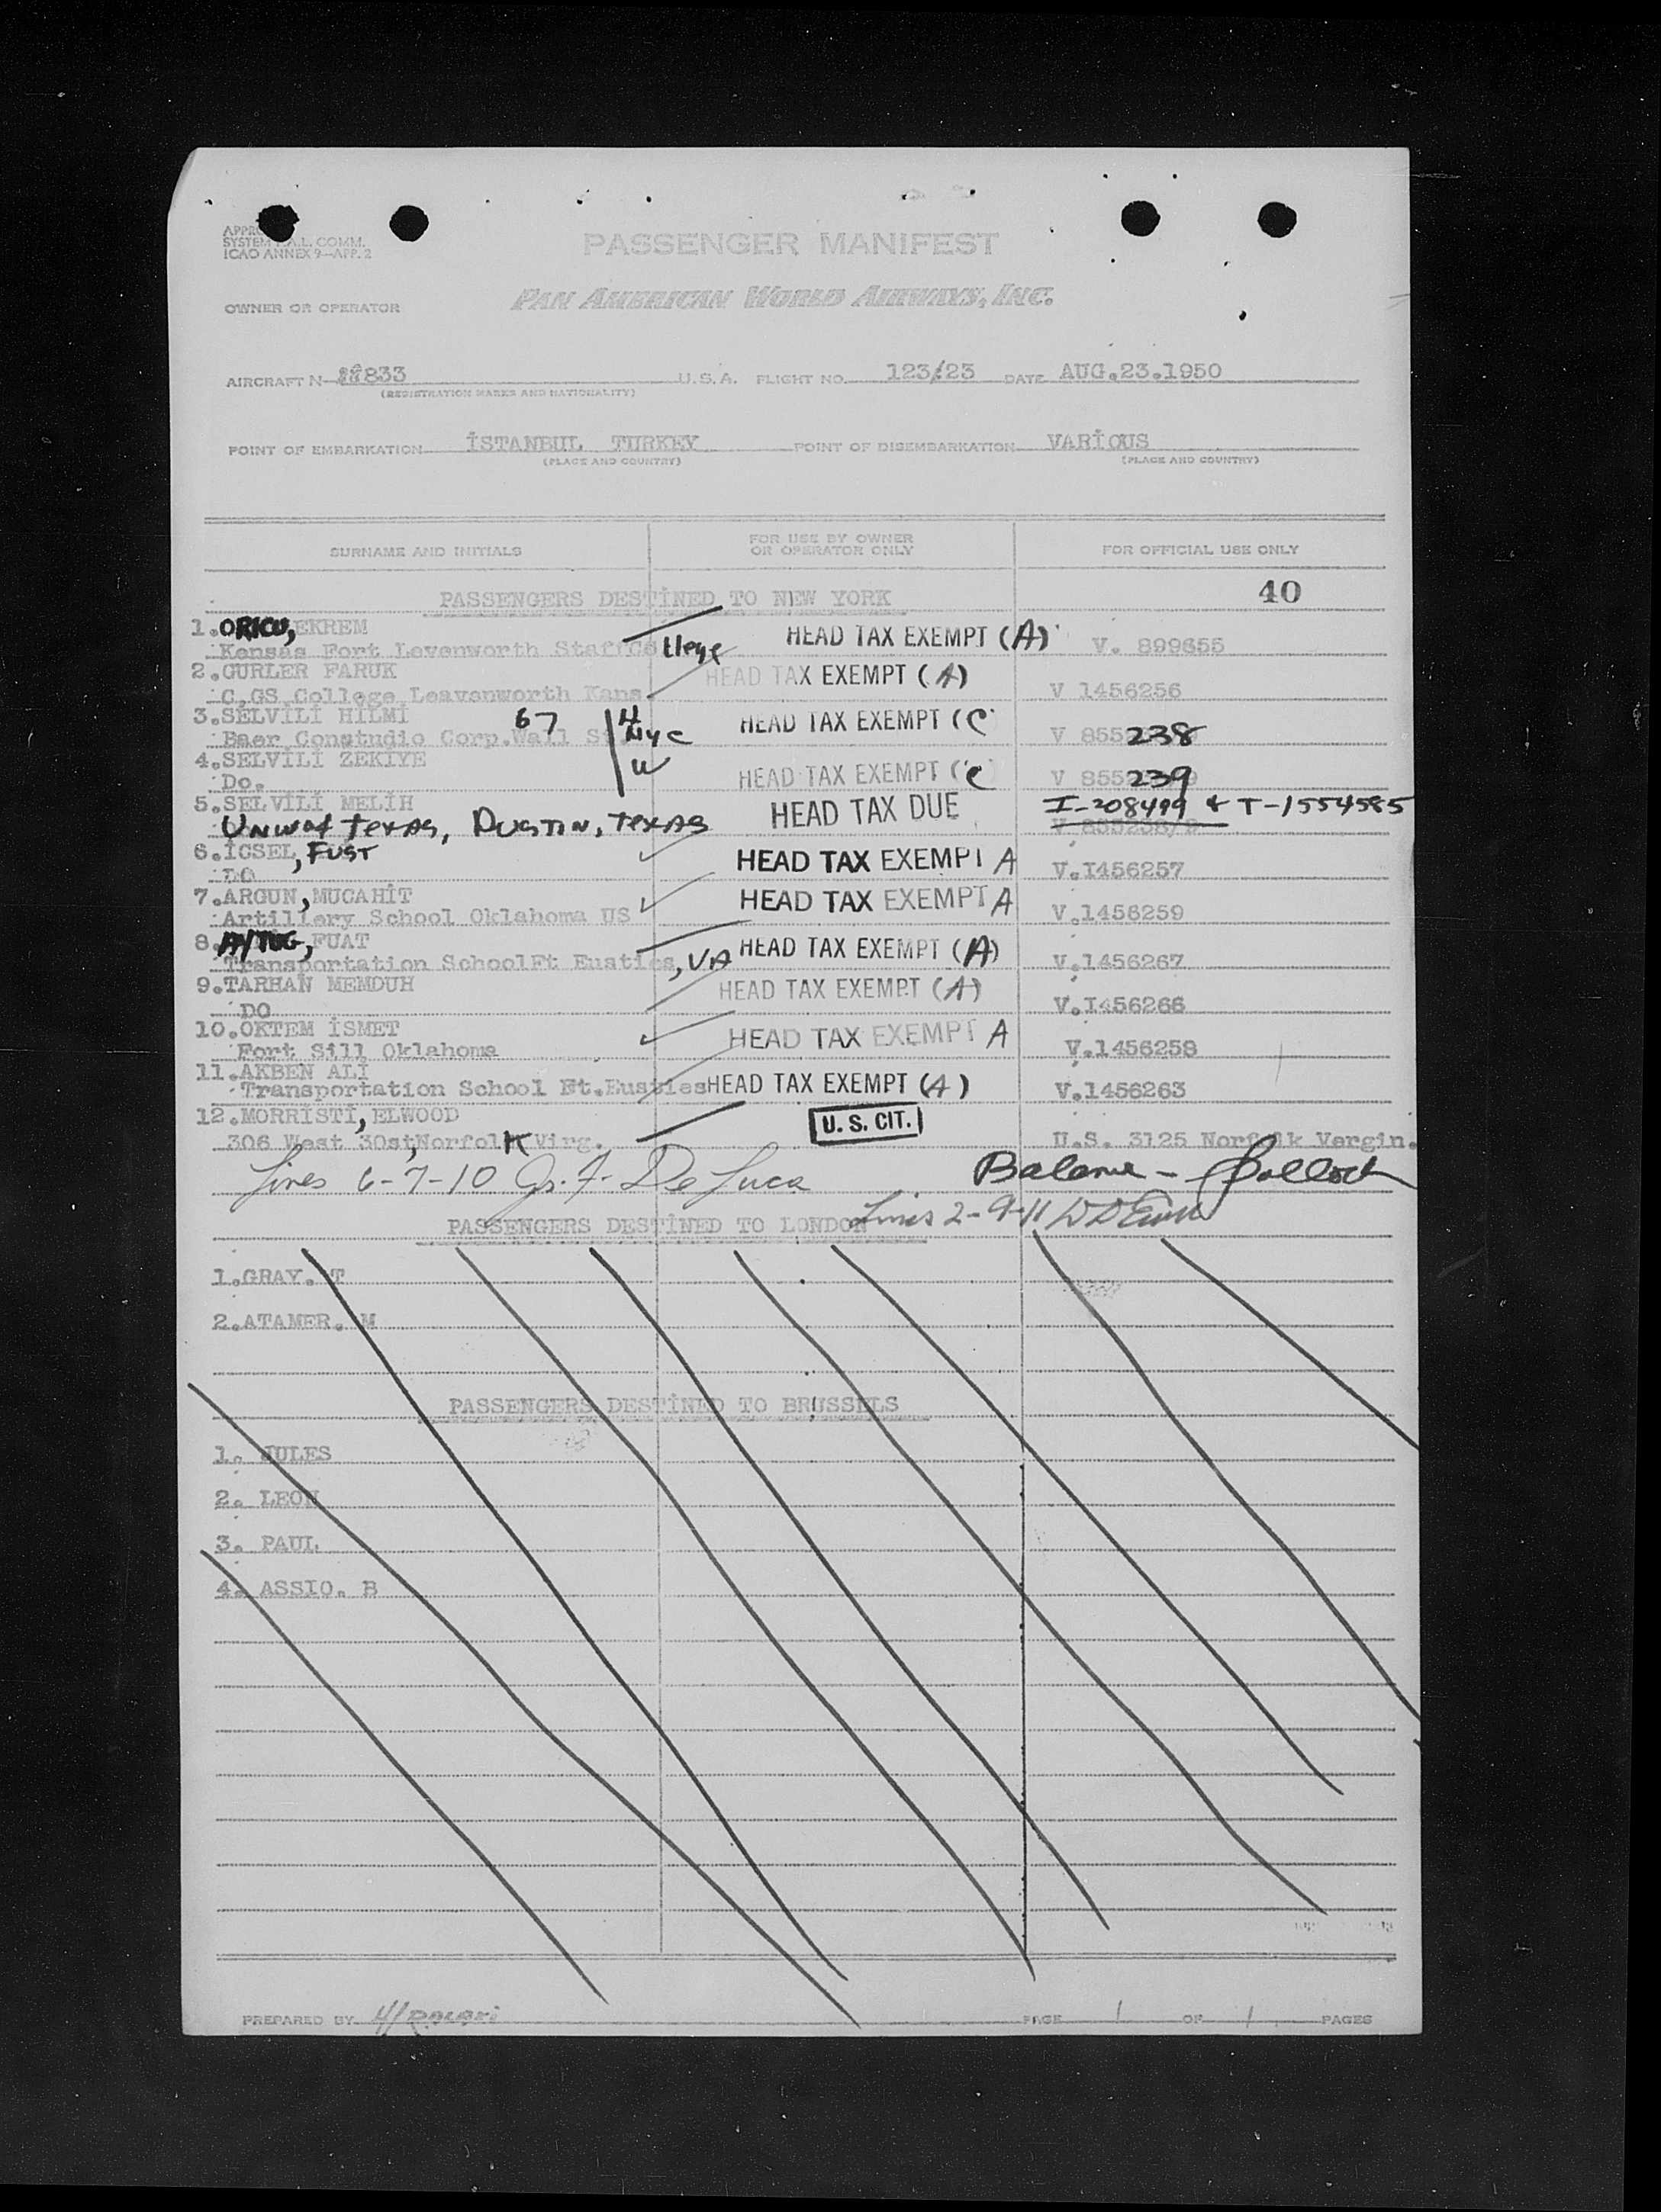 SYSTEM F.A.L. COMM.
ICAO ANNEX 9—APP. 2
PASSENGER MANIFEST
OWNER OR OPERATOR PAN AMERICAN WORLD AIRWAYS, INC.
AIRCRAFT N 833 U.S.A. FLIGHT NO. 123/23 DATE AUG.23.1950
(REGISTRATION MARKS AND NATIONALITY)
POINT OF EMBARKATION İSTANBUL TURKEY POINT OF DISEMBARKATION VARİOUS
(PLACE AND COUNTRY) (PLACE AND COUNTRY)
SURNAME AND INITIALS FOR USE BY OWNER OR OPERATOR ONLY FOR OFFICIAL USE ONLY
PASSENGERS DESTİNED TO NEW YORK 40
1. ORICU, EKREM HEAD TAX EXEMPT (A)
Kensas Fort Levenworth Staff College V. 899655
2.GURLER FARUK HEAD TAX EXEMPT (A)
C,GS College Leavenworth Kans V 1456256
3.SELVİLİ HİLMİ 67 H HEAD TAX EXEMPT (C)
Baer Constudio Corp.Wall St. NYC V 855238
4.SELVİLİ ZEKIYE W HEAD TAX EXEMPT (C)
Do. V 855239
5.SELVİLİ MELİH HEAD TAX DUE I-208499 & T-1554585
Univ of Texas, Austin, Texas
6.İCSEL, FUST HEAD TAX EXEMPT A
DO V.I456257
7.ARGUN, MUCAHİT HEAD TAX EXEMPT A
Artillery School Oklahoma US V.1456259
8. AYTUG, FUAT HEAD TAX EXEMPT (A)
Transportation SchoolFt Eusties, VA V.1456267
9.TARHAN MEMDUH HEAD TAX EXEMPT (A)
DO V.I456266
10.OKTEM İSMET HEAD TAX EXEMPT A
Fort Sill Oklahoma V.1456258
11.AKBEN ALİ
Transportation School Ft.Eusties HEAD TAX EXEMPT (A) V.1456263
12.MORRISTİ, ELWOOD U. S. CIT.
306 West 30st, Norfolk Virg. U.S. 3125 Norfolk Vergin.
Lines 6-7-10 Jr. F. De Luca Balance - Pollock
PASSENGERS DESTİNED TO LONDON Lines 2-9-11
1.GRAY. T
2.ATAMER. M
PASSENGERS DESTİNED TO BRUSSELS
1. JULES
2. LEON
3. PAUL
4. ASSIO. B
PREPARED BY PAGE 1 OF 1 PAGES